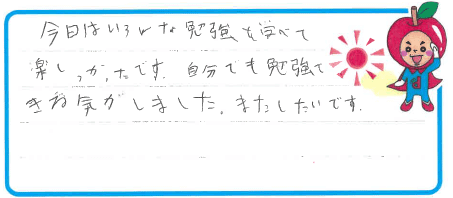 今日はいろいろな勉強を学べて
楽しっかったです。自分でも勉強で
きる気がしました。またしたいです。